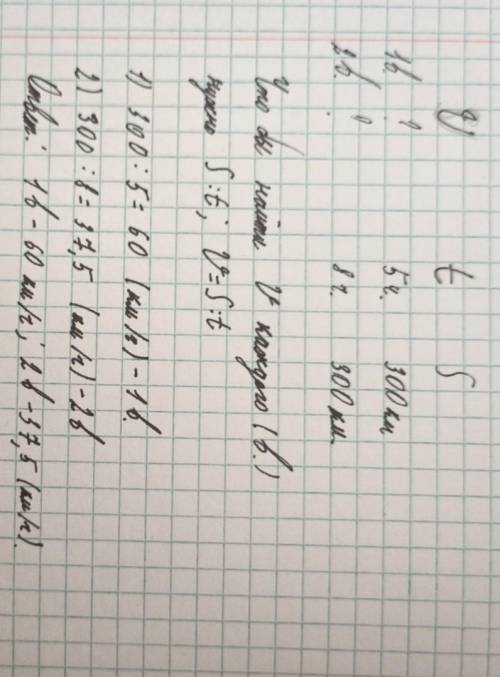 V t S
1в. ? 5ч. 300 км
2в. ? 8ч. 300 км.
Что бы найти V каждого (в.)
нужно S:t; V=S:t
1) 300:5=60 (км/ч)-1в.
2) 300:8=37,5 (км/ч)-2в
Ответ: 1в-60 км/ч; 2в-37,5 (км/ч).